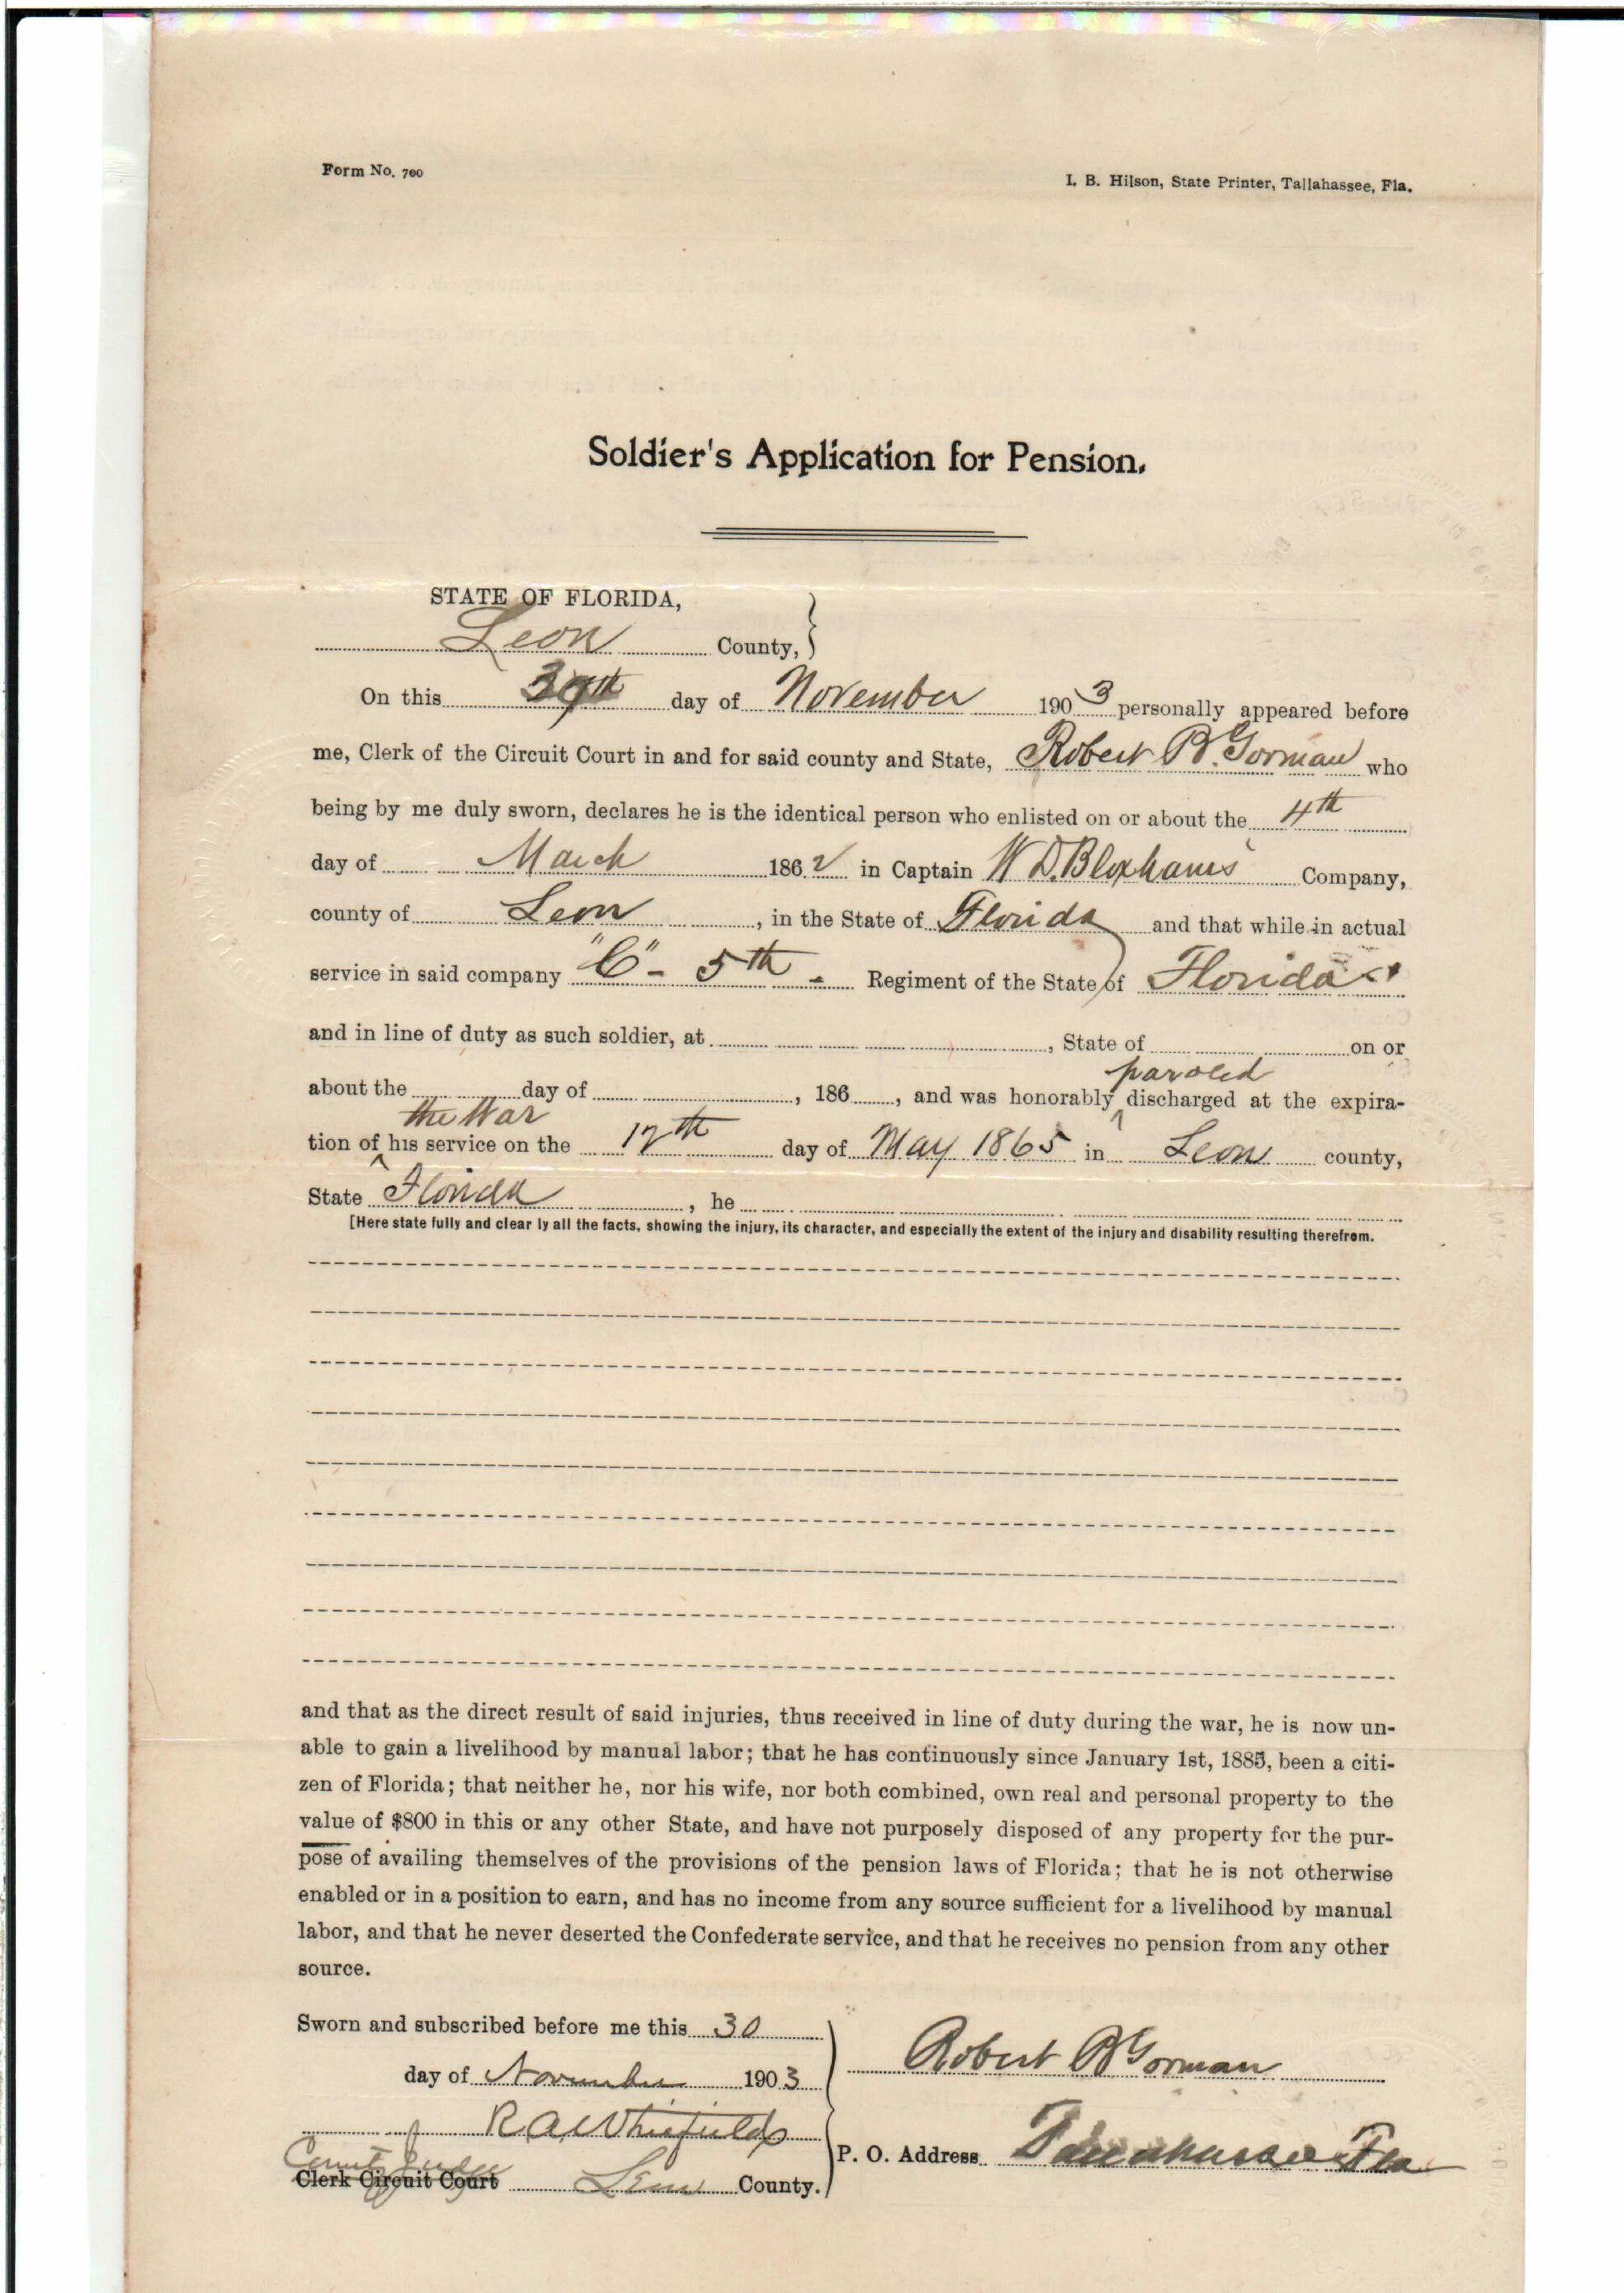 Form No. 700
I. B. Hilson, State Printer, Tallahassee, Fla.
Soldier's Application for Pension.
STATE OF FLORIDA,
Leon County,
On this 30th day of November 1903 personally appeared before
me, Clerk of the Circuit Court in and for said county and State, Robert B. Gorman who
being by me duly sworn, declares he is the identical person who enlisted on or about the 4th
day of March 1862 in Captain W. D. Bloxham's Company,
county of Leon, in the State of Florida and that while in actual
service in said company "C" - 5th - Regiment of the State of Florida
and in line of duty as such soldier, at , State of on or
paroled
about the day of , 186 , and was honorably ^ discharged at the expira-
the War
tion of ^ his service on the 12th day of May 1865 in Leon county,
State Florida , he
[Here state fully and clearly all the facts, showing the injury, its character, and especially the extent of the injury and disability resulting therefrom.
and that as the direct result of said injuries, thus received in line of duty during the war, he is now un-
able to gain a livelihood by manual labor; that he has continuously since January 1st, 1885, been a citi-
zen of Florida; that neither he, nor his wife, nor both combined, own real and personal property to the
value of $800 in this or any other State, and have not purposely disposed of any property for the pur-
pose of availing themselves of the provisions of the pension laws of Florida; that he is not otherwise
enabled or in a position to earn, and has no income from any source sufficient for a livelihood by manual
labor, and that he never deserted the Confederate service, and that he receives no pension from any other
source.
Sworn and subscribed before me this 30
day of November 1903
Robert B Gorman
R A Whitfield
County Judge
Clerk Circuit Court Leon County.
P. O. Address Tallahassee Fla